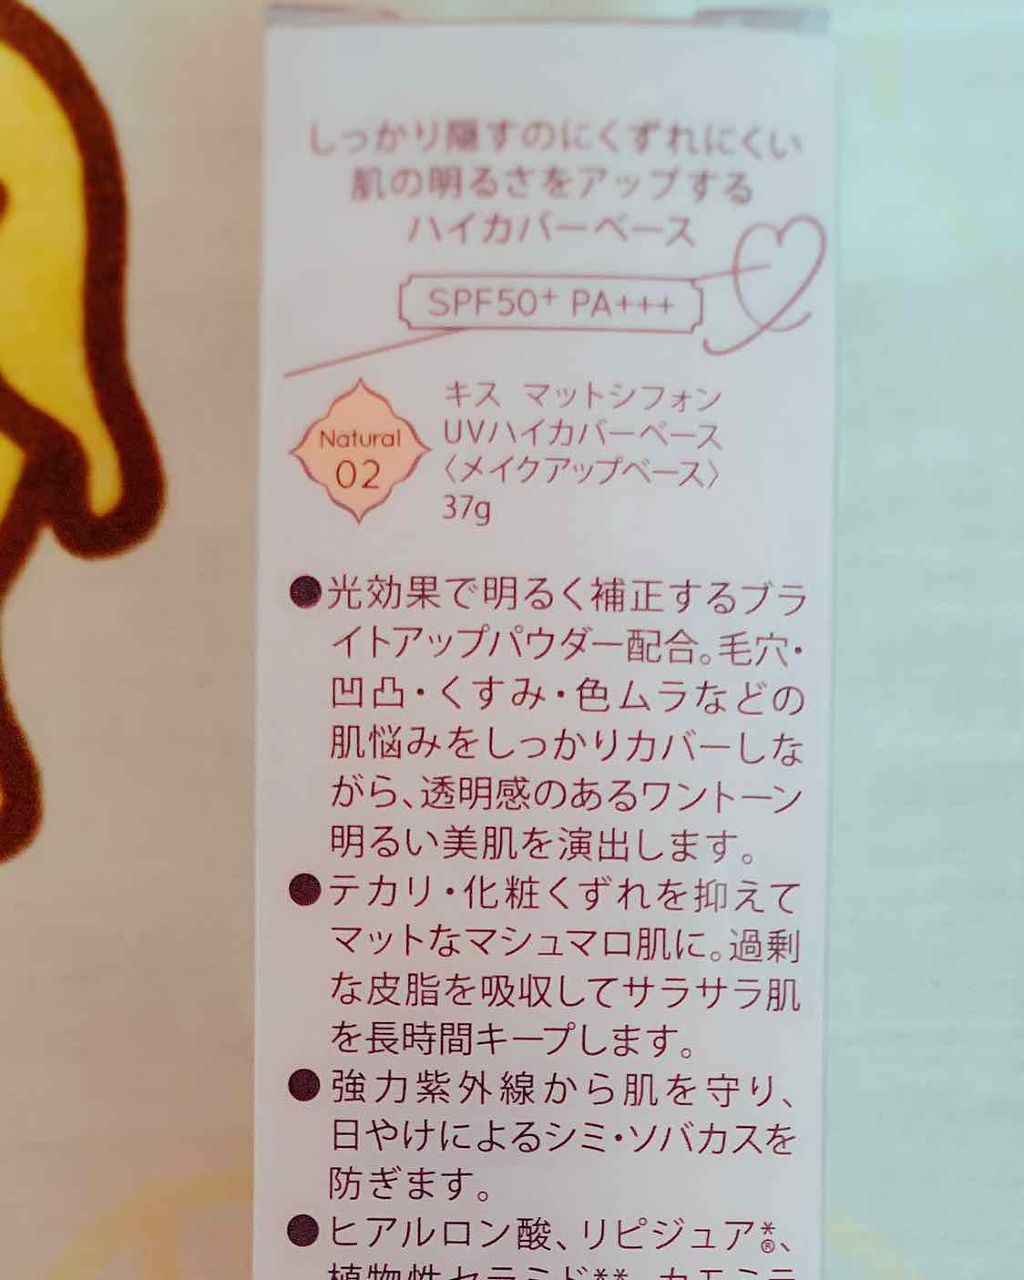 しっかり隠すのにくずれにくい
肌の明るさをアップする
ハイカバーベース
SPF50+ PA+++
Natural
02
キス マットシフォン
UVハイカバーベース
〈メイクアップベース〉
37g
●光効果で明るく補正するブラ
イトアップパウダー配合。毛穴・
凹凸・くすみ・色ムラなどの
肌悩みをしっかりカバーしな
がら、透明感のあるワントーン
明るい美肌を演出します。
●テカリ・化粧くずれを抑えて
マットなマシュマロ肌に。過剰
な皮脂を吸収してサラサラ肌
を長時間キープします。
●強力紫外線から肌を守り、
日やけによるシミ・ソバカスを
防ぎます。
●ヒアルロン酸、リピジュア*®、
植物性セラミド**、カモミラ